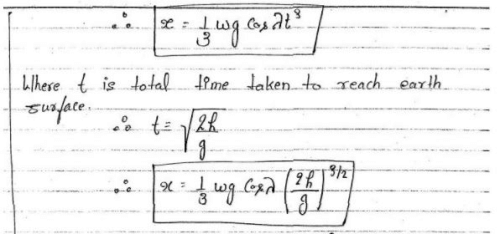 ∴ x = 1/3 ωg Cosλt³
Where t is total time taken to reach earth
surface.
∴ t = √(2h/g)
∴ x = 1/3 ωg Cosλ (2h/g)^3/2